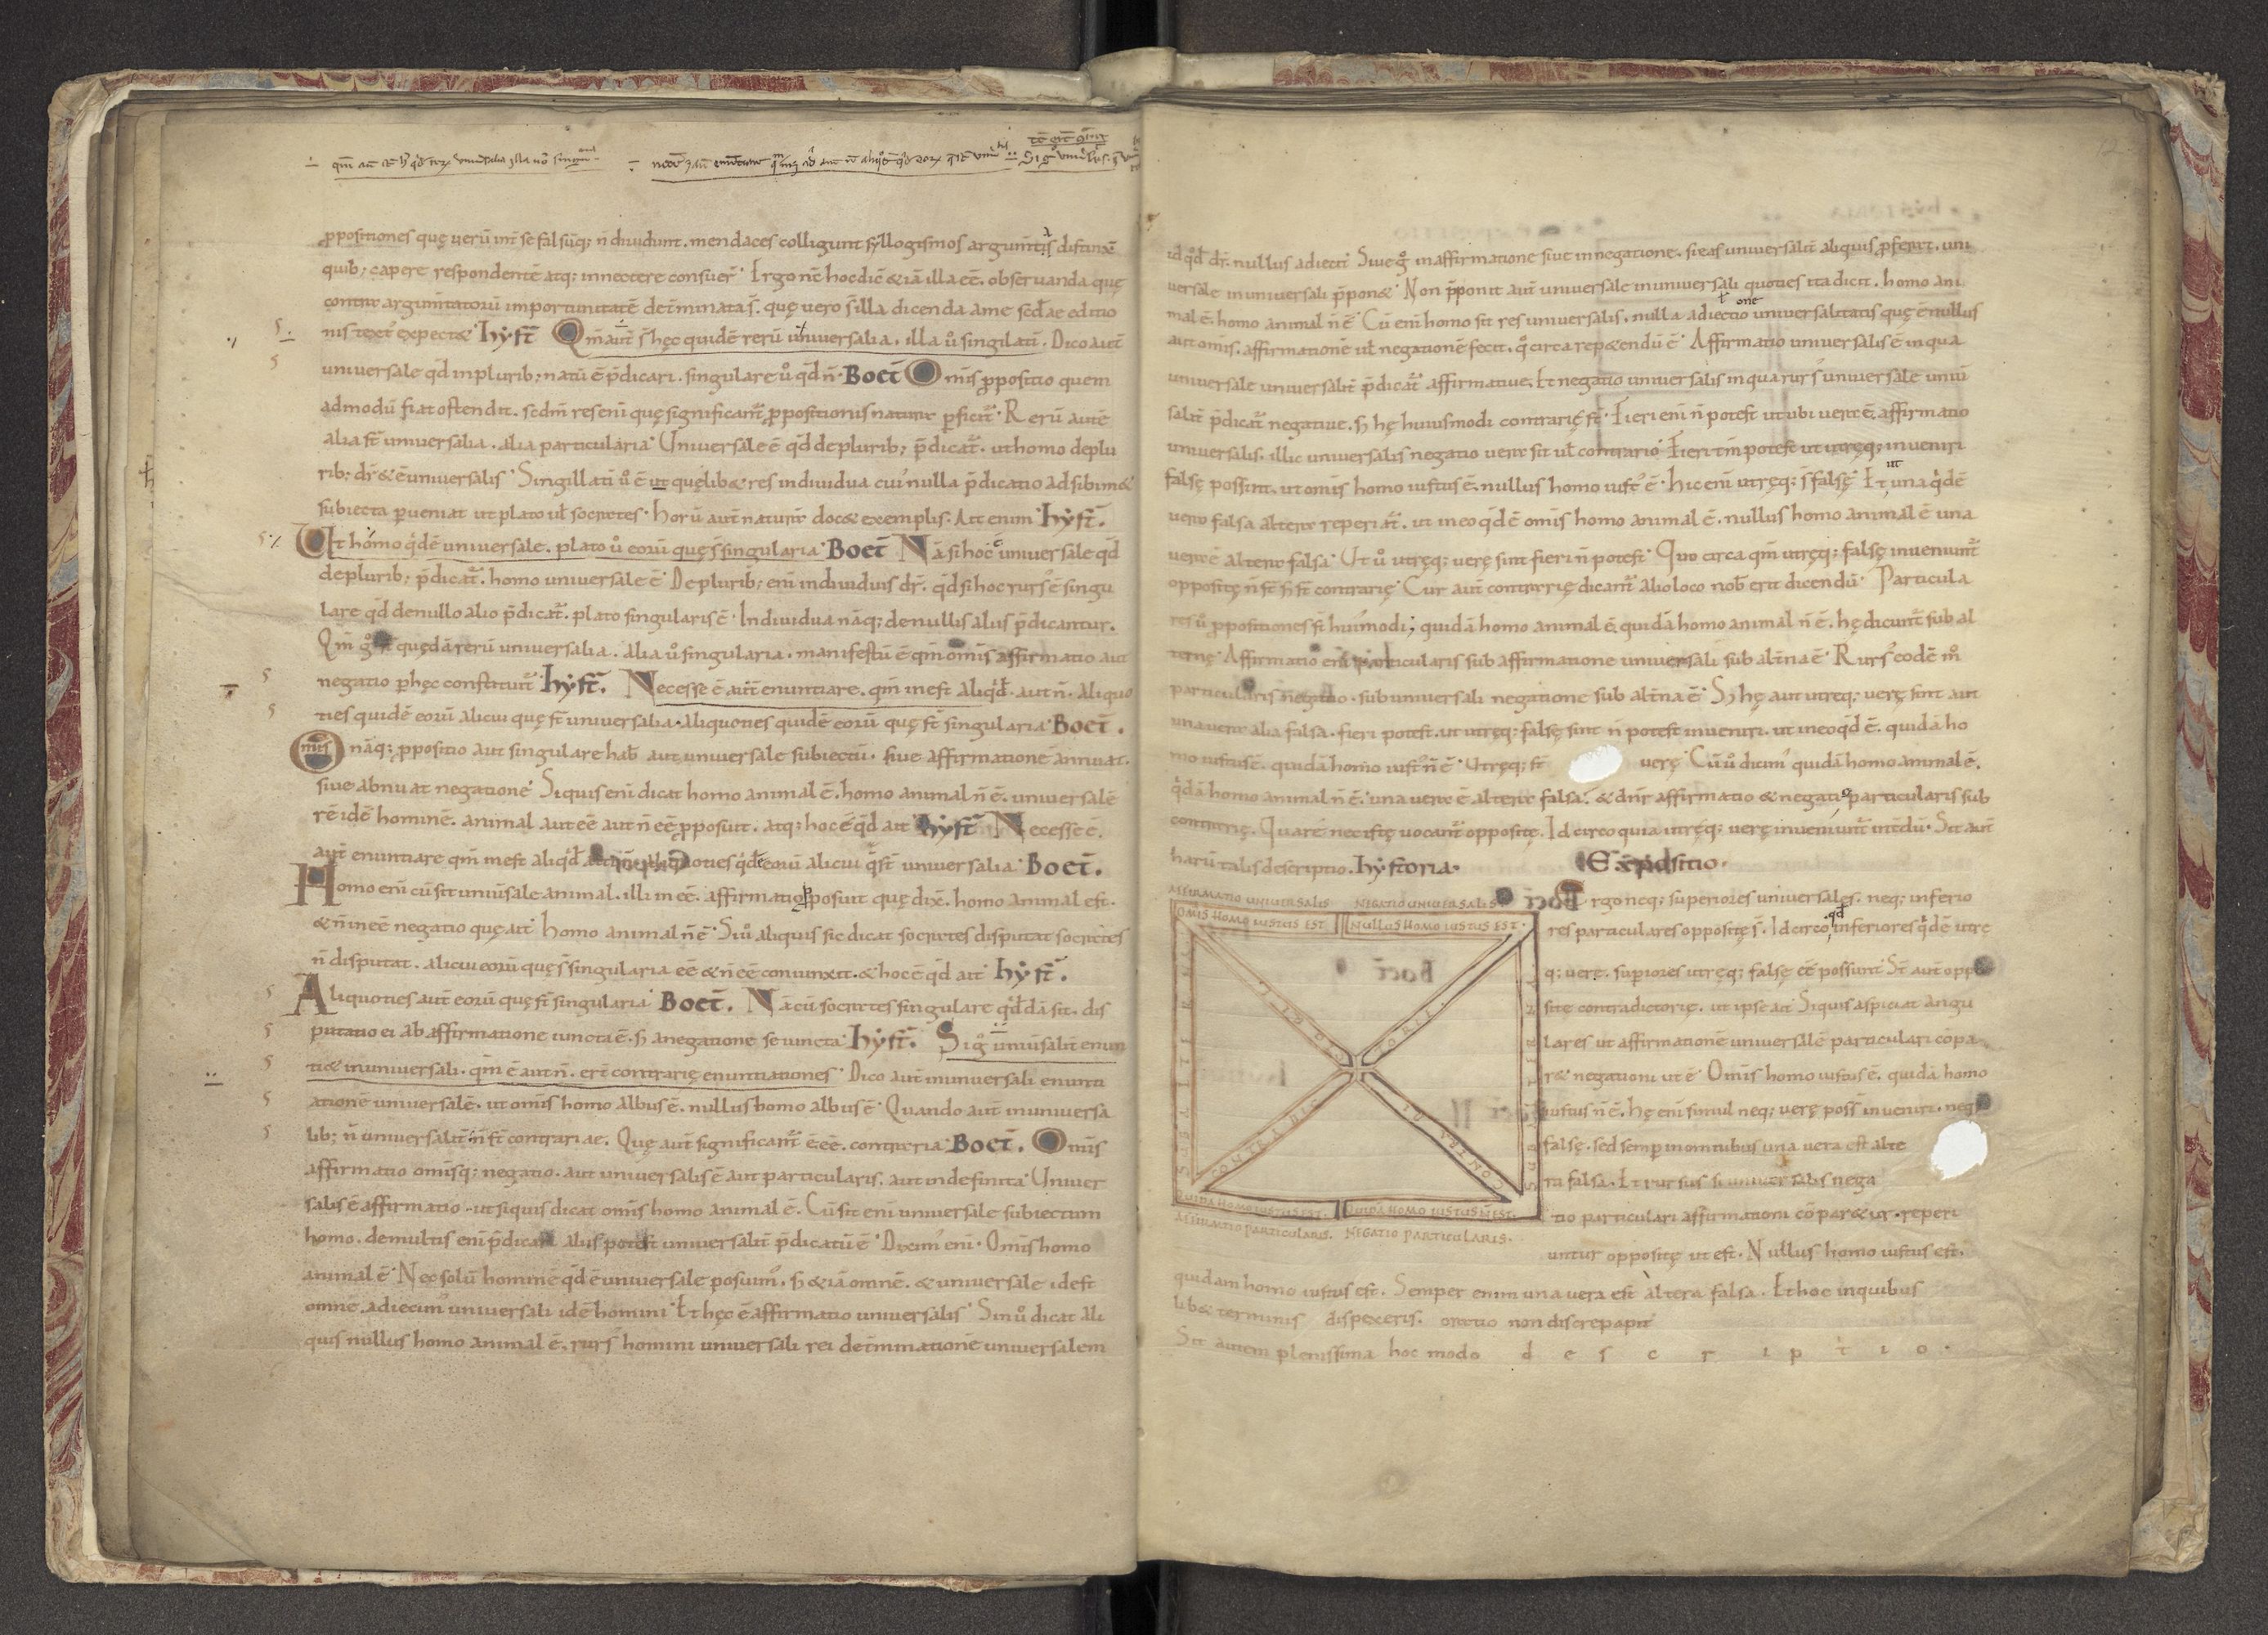 ꝓpositiones quę uerū int̄ se falsūq; n̄ diuidunt. mendaces colligunt syllogismos argum̄tis distinxē
quib; capere respondentē atq; innectere consuer̄ Ergo n̄c hoc dic̄ & iā illa eē. obseruanda quę
contra argum̄tatorū importunitatē det̄minata s̄. quę uero s̄ illa dicenda a me scd̄ae editio
nis text' expectæ hyst̄ Qm̄ aut̄ s̄ hęc quidē rerū uniuersalia. illa ů singilati. Dico aut̄
uniuersale qd̄ in plurib; natū ē p̄dicari. singulare ů qd̄ n̄. Boet̄ Om̄is ꝓpositio quem
admodū fiat ostendit. sed m̄ res eni quę significant̄ ꝓpositionis natura perficit̄. Rerū autē
alia st̄ uniuersalia. alia particularia Uniuersale ē qd̄ de plurib; p̄dicat̄. ut homo de plu
rib; dr̄ & ē uniuersalis Singillati ů ē ut quęlib& res indiuidua cui' nulla p̄dicatio ad sibim&
subiecta perueniat ut plato ul̄ socrates. horū aut̄ naturā doc& exemplis. Ait enim hyst̄.
Ut homo qd̄ē uniuersale. plato ů eorū quę s̄ singularia Boet̄ Nā si hoc ē uniuersale qd̄
de plurib; p̄dicat̄. homo uniuersale ē Deplurib; eni indiuiduis dr̄. qd̄ si hoc rurs' ē singu
lare qd̄ de nullo alio p̄dicat̄. plato singularis ē. Indiuidua nāq; de nullis aliis p̄dicantur.
Qm̄ g̊ st̄ quędā rerū uniuersalia. alia ů singularia. manifestū ē qm̄ omis affirmatio aut
negatio p hęc constituit̄ hyst̄. Necesse ē aut̄ enuntiare. qm̄ inest aliqd̄. aut n̄. Aliquo
ties quidē eorū alicui quę st̄ uniuersalia. aliquoties quidē eorū quę st̄ singularia Boet̄.
Omis nāq; ꝓpositio aut singulare hab̄ aut uniuersale subiectū. siue affirmationē annuat.
siue abnuat negationē Siquis eni dicat homo animal ē. homo animal n̄ ē. uniuersalē
rē idē hominē. animal aut eē aut n̄ eē ꝓposuit. atq; hoc ē qd̄ ait hyst̄ Necesse ē.
aut̄ enuntiare qm̄ inest aliqd̄ aliquoties qd̄ē eorū alicui q̄ st̄ uniuersalia Boet̄.
Homo eni cū sit uniūsale animal. illi in eē. affirmatio ꝓposuit quę dix̄. homo animal est.
& n̄ in eē negatio quę ait homo animal n̄ ē Si ů aliquis sic dicat socrates disputat socrates
n̄ disputat. alicui eorū quę s̄ singularia eē & n̄ eē coniunxit. & hoc ē qd̄ ait hyst̄.
Aliquoties aut̄ eorū quę st̄ singularia Boet̄. Nā cū socrates singulare qd̄dā sit. dis
putatio ei ab affirmatione iuncta ē. s; a negatione seiuncta hyst̄. Si g̊ uniūsalit̄ enun
ti& in uniuersali. qm̄ ē aut n̄. er̄t contrarię enuntiationes Dico aut̄ in uniuersali enunti
ationē uniuersalē. ut omis homo albus ē. nullus homo albus ē Quando aut̄ in uniuersā
lib; n̄ uniuersalit̄ n̄ st̄ contrariae. Quę aut̄ significant̄ ē eē. contraria Boet̄. Omis
affirmatio omisq; negatio. aut uniuersalis ē aut particularis. aut indefinita Uniuer
salis ē affirmatio. ut siquis dicat omis homo animal ē. Cū sit eni uniuersale subiectum
homo. de multis eni p̄dicari aliis potest uniuersalit̄ p̄dicatū ē Dixim' eni. Omis homo
animal ē Nec solū hominē qd̄ ē uniuersale posuim'. s; & iā omnē. & uniuersale id est
omnē. adiecim' uniuersali idē homini Et hęc ē affirmatio uniuersalis Sin ů dicat ali
quis nullus homo animal ē. rurs' homini uniuersali rei det̄minationē uniuersalem
12
id qd̄ dr̄. nullus adiecit Siue g̊ in affirmatione siue in negatione. si eas uniuersalit̄ aliquis ꝓferat. uni
uersale in uniuersali ꝓpon& Non ꝓponit aut̄ uniuersale in uniuersali quoties ita dicit. homo ani
mal ē. homo animal n̄ ē Cū eni homo sit res uniuersalis. nulla adiectio uniuersalitatis quę ē nullus
aut omis. affirmationē ul̄ negationē fecit. q̊ circa rep&endū ē Affirmatio uniuersalis ē in qua
uniuersale uniuersalit̄ p̄dicat̄ affirmatiue. Et negatio uniuersalis in qua rurs' uniuersale uniū
salit̄ p̄dicat̄ negatiue. s; hę huiusmodi contrarię st̄. Fieri eni n̄ potest ut ubi uera ē affirmatio
uniuersalis. illic uniuersalis negatio uera sit ul̄ contrario Fieri tm̄ potest ut utręq; inueniri
falsę possint. ut omis homo iustus ē. nullus homo iust' ē. hic eni utręq; s̄ falsę Et ut una qd̄ē
uera falsa altera reperiat̄. ut in eo qd̄ ē omis homo animal ē. nullus homo animal ē una
uera ē altera falsa Ut ů utręq; verę sint fieri n̄ potest Quo circa qm̄ utręq; falsę inueniunt̄
oppositę n̄ st̄ s; st̄ contrarię Cur aut̄ contrarię dicant̄ alio loco nob̄ erit dicendū Particula
res ů ꝓpositiones st̄ hui'modi; quidā homo animal ē. quidā homo animal n̄ ē. hę dicunt̄ sub al
ternę Affirmatio eni particularis sub affirmatione uniuersali sub alt̄na ē Rurs' eodē m̊
particularis negatio. sub uniuersali negatione sub alt̄na ē S; hę aut utręq; uerę sint aut
una uera alia falsa. fieri potest. ut utręq; falsę sint n̄ potest inueniri. ut in eo qd̄ ē. quidā ho
mo iustus ē. quidā homo iust' n̄ ē Utręq; st̄ uerę Cū ů dicim' quidā homo animal ē.
qd̄ā homo animal n̄ ē. una uera ē altera falsa. & dn̄r affirmatio & negatio particularis sub
contrarię. Quare nec istę uocant̄ oppositę. Idcirco quia utręq; uerę inueniunt̄ int̄dū. Sit aut̄
harū talis descriptio. hystoria. Expositio.
AFFIRMATIO UNIUERSALIS NEGATIO UNIUERSALIS
OMIS HOMO IUSTUS EST NULLUS HOMO IUSTUS EST.
CONTRADIC TORII
CONTRADIC TORII
QUIDĀ HOMO IUSTUS EST. QUIDĀ HOMO IUSTUS N̄ EST.
AFFIRMATIO PARTICULARIS. NEGATIO PARTICULARIS.
Ergo neq; superiores uniuersales. neq; inferio
res particulares oppositę s̄. Idcirco qd̄ inferiores qd̄ē utrę
q; uerę. superiores utręq; falsę eē possunt St̄ aut̄ oppo
sitę contradictorię. ut ipse ait Siquis aspiciat angu
lares ut affirmationē uniuersalē particulari cōpa
r& negationi ut ē Omis homo iustus ē. quidā homo
iustus n̄ ē. hę eni simul neq; uerę poss̄ inueniri. neq;
falsę. sed semp in omnibus una uera est alte
ra falsa. Et rursus si uniuersalis nega
tio particulari affirmationi cōpar&ur. reperi
untur oppositę ut est. Nullus homo iustus est.
quidam homo iustus est. Semper enim una uera est altera falsa. Et hoc in quibus
lib& terminis dispexeris. oratio non discrepabit
Sit autem plenissima hoc modo descriptio.